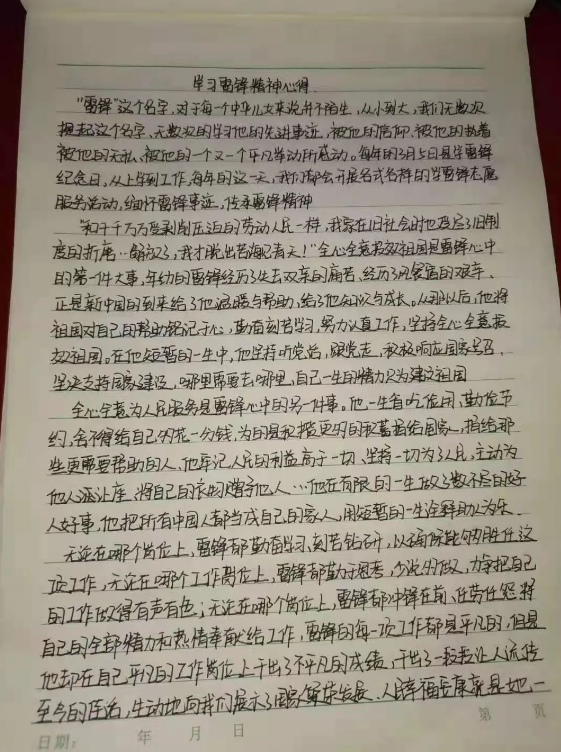 学习雷锋精神心得
"雷锋"这个名字,对于每一个中华儿女来说并不陌生,从小到大,我们无数次
提起这个名字、无数次的学习他的先进事迹、被他的信仰、被他的执着
被他的无私、被他的一个又一个平凡举动所感动。每年的3月5日是学雷锋
纪念日,从上学到工作,每年的这一天,我们都会开展各式各样的学雷锋志愿
服务活动,缅怀雷锋事迹,传承雷锋精神
"和千千万万受剥削压迫的劳动人民一样,我家在旧社会时也受尽了旧制
度的折磨…解放了,我才脱出苦海见青天!"全心全意报效祖国是雷锋心中
的第一件大事,年幼的雷锋经历了失去双亲的痛苦、经历了风餐宿的艰辛、
正是新中国的到来给了他温暖与帮助,给了他知识与成长。从那以后,他将
祖国对自己的帮助铭记于心,勤奋刻苦学习,努力认真工作,坚持全心全意报
效祖国。在他短暂的一生中,他坚持听党话,跟党走,积极响应国家号召、
坚决支持国家建设,哪里需要去哪里,自己一生的精力只为建设祖国
全心全意为人民服务是雷锋心中的另一件事。他一生省吃俭用、勤俭节
约,舍不得给自己多花一分钱,为的是积攒更多的积蓄留给国家、捐给那
些更需要帮助的人、他牢记人民的利益高于一切、坚持一切为了人民,主动为
他人派让座、将自己的衣物赠予他人…他在有限的一生做了数不尽的好
人好事,他把所有中国人都当成自己的家人,用短暂的一生诠释助人为乐、
无论在哪个岗位上,雷锋都勤奋学习,刻苦钻研,以确保能够胜任这
项工作,无论在哪个工作岗位上,雷锋都勤于思考,少说多做,力争把自己
的工作做得有声有色;无论在哪个岗位上,雷锋都冲锋在前、任劳任怨,将
自己的全部精力和热情奉献给工作,雷锋的每一项工作都是平凡的,但是
他却在自己平凡的工作岗位上干出了不平凡的成绩,干出了一段段让人流传
至今的佳话,生动地向我们展示了国家繁荣发展、人民幸福安康就是如此,一
日期: 年 月 日
第 页